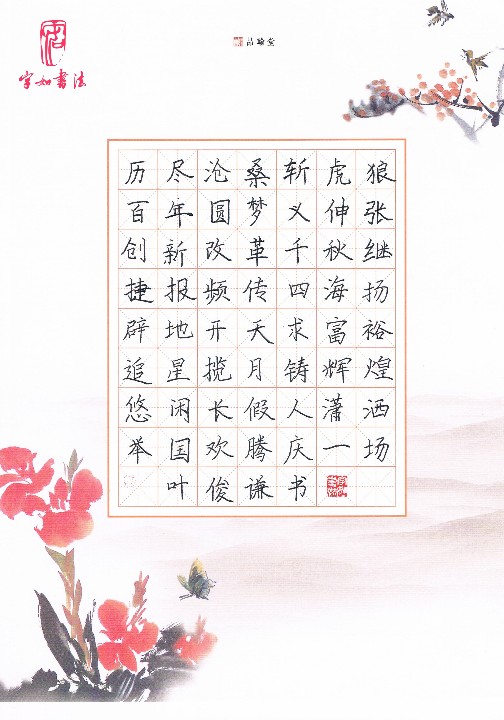 字如书法
品臻堂
历尽沧桑斩虎狼
百年圆梦义伸张
创新改革千秋继
捷报频传四海扬
辟地开天求富裕
追星揽月铸辉煌
悠闲长假人潇洒
举国欢腾庆一场
叶俊谦书